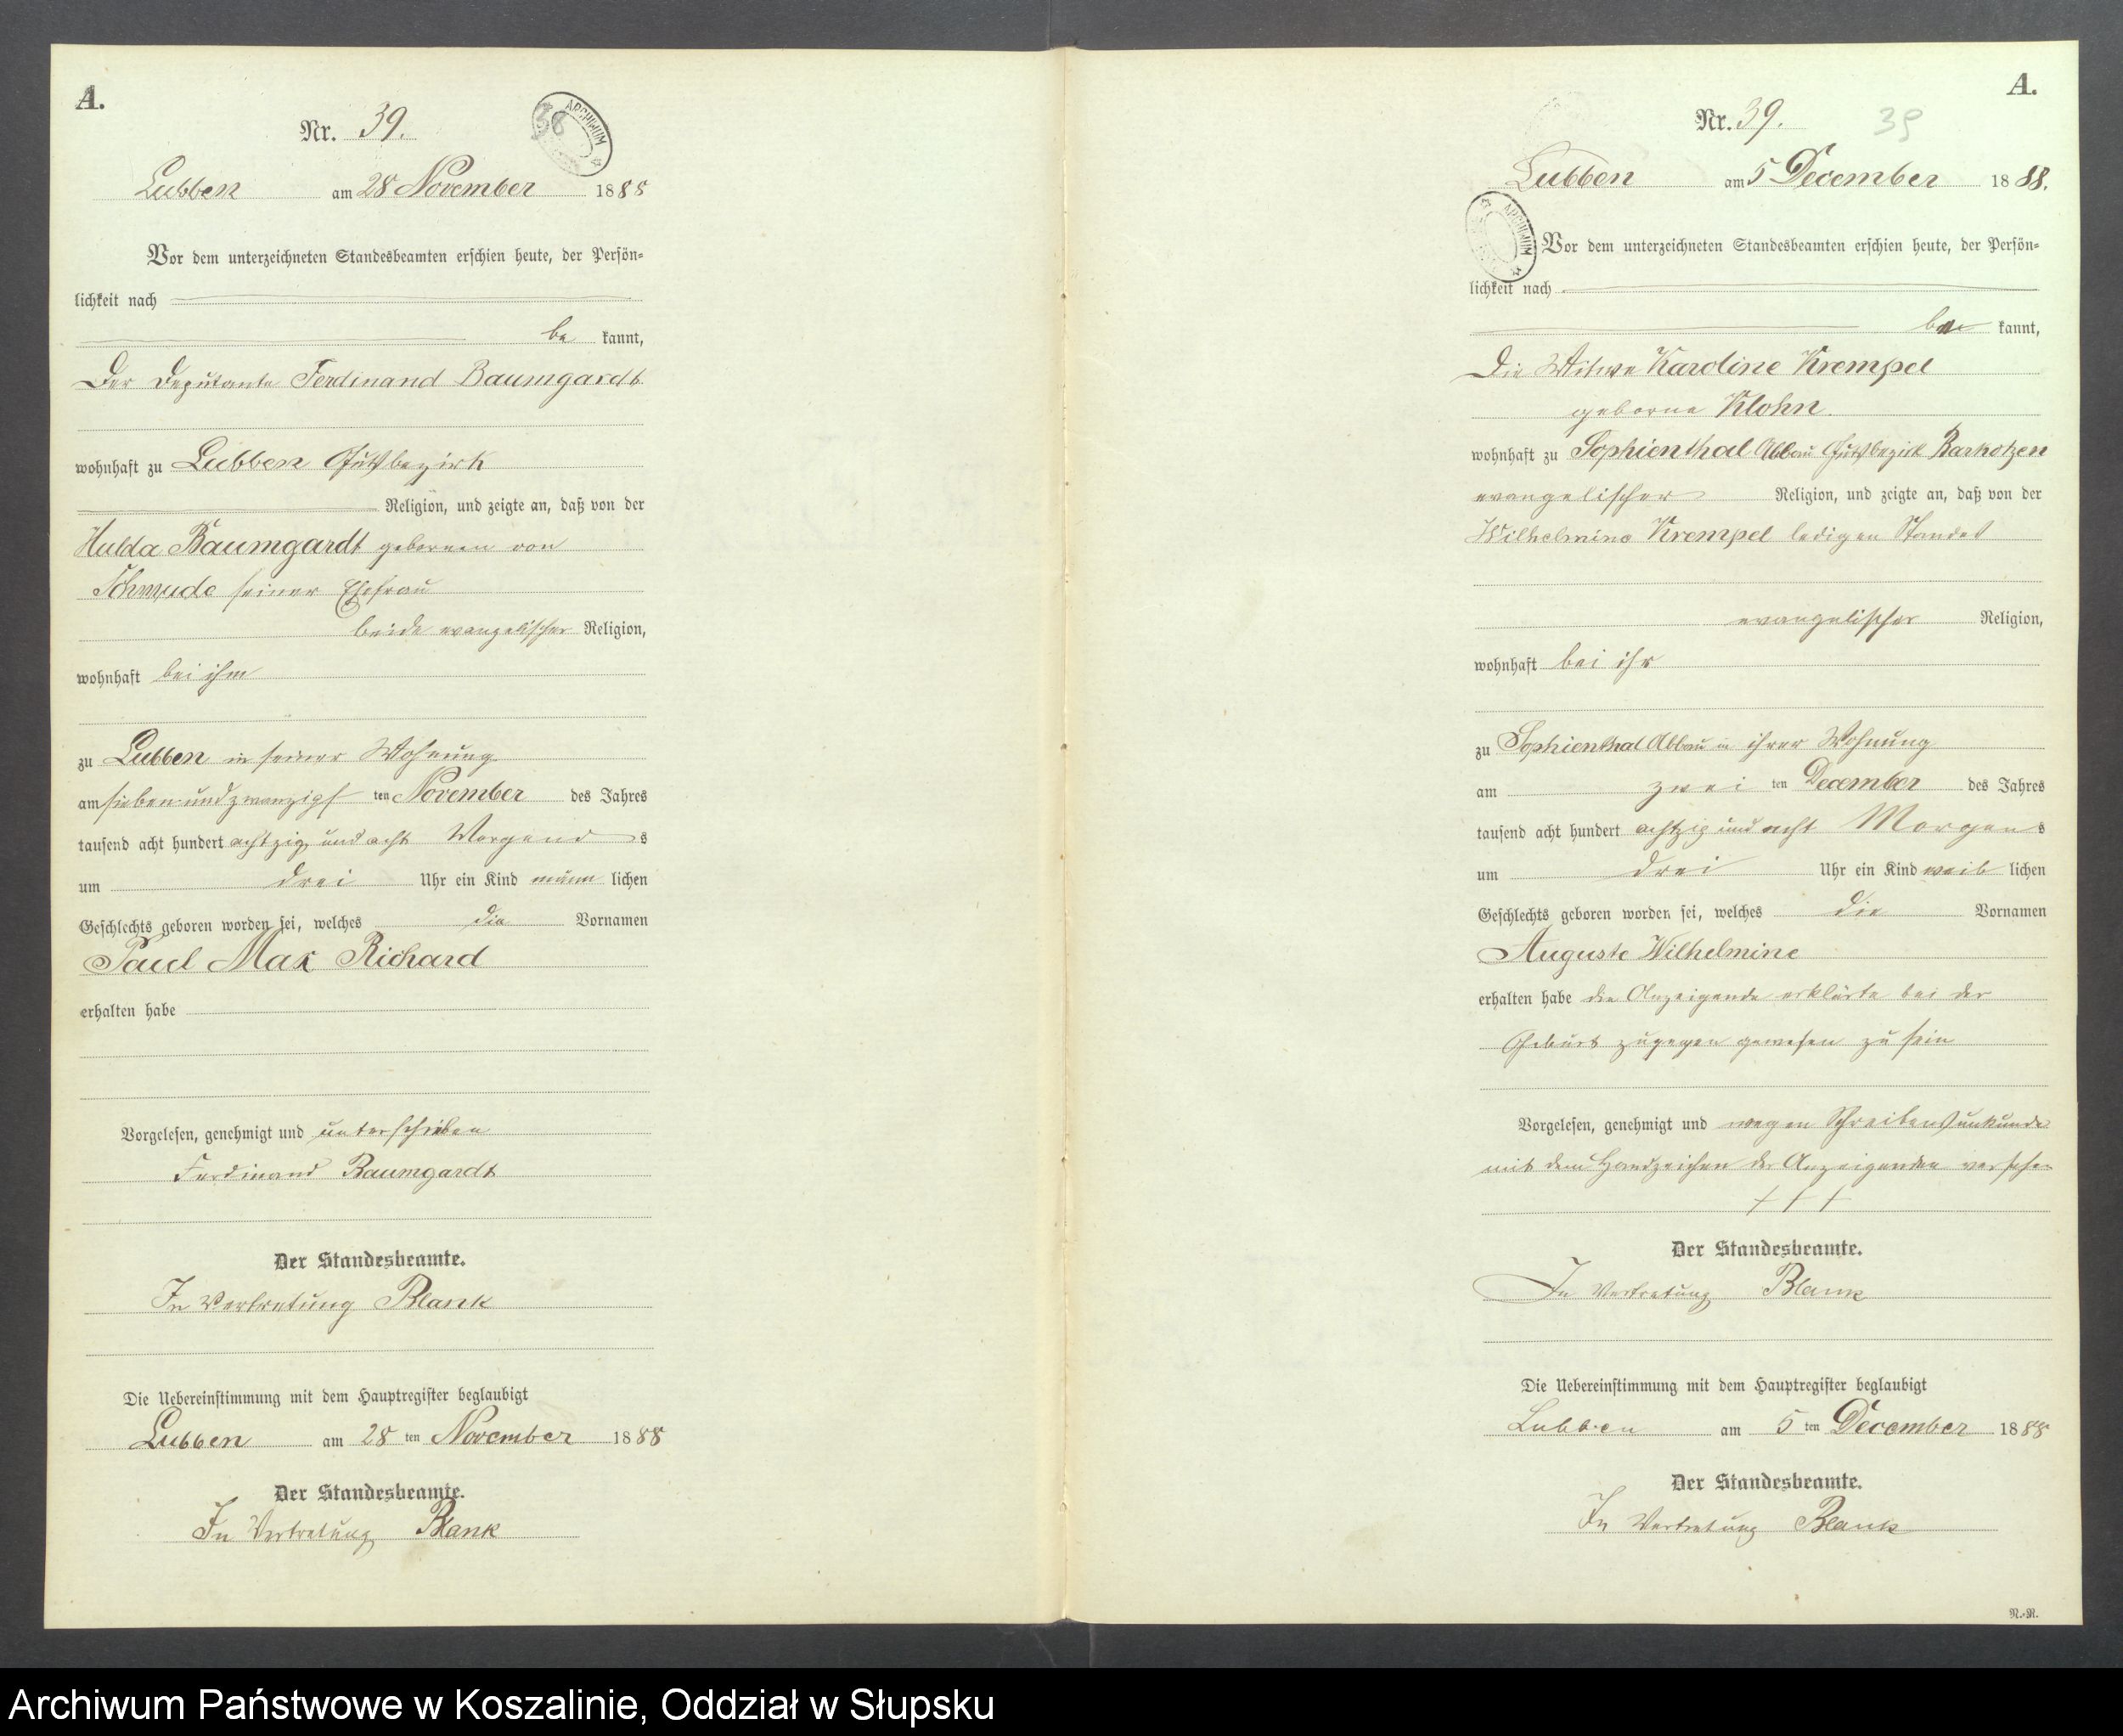 A.
Nr. 39.
38
ARCHIWUM
Lubben am 28 November 1888
Vor dem unterzeichneten Standesbeamten erschien heute, der Persön-
lichkeit nach
be kannt,
Der Deputante Ferdinand Baumgardt
wohnhaft zu Lubben Gutsbezirk
Religion, und zeigte an, daß von der
Hulda Baumgardt geborenen von
Schmude seiner Ehefrau
beide evangelischer Religion,
wohnhaft bei ihm
zu Lubben in seiner Wohnung
am sieben und zwanzigs ten November des Jahres
tausend acht hundert achtzig und acht Morgens s
um drei Uhr ein Kind männ lichen
Geschlechts geboren worden sei, welches die Vornamen
Paul Max Richard
erhalten habe
Vorgelesen, genehmigt und unterschrieben
Ferdinand Baumgardt
Der Standesbeamte.
In Vertretung Blank
Die Uebereinstimmung mit dem Hauptregister beglaubigt
Lubben am 28 ten November 1888
Der Standesbeamte.
In Vertretung Blank
A.
Nr. 39.
39
Lubben am 5 December 1888.
ARCHIWUM
Vor dem unterzeichneten Standesbeamten erschien heute, der Persön-
lichkeit nach
be kannt,
Die Witwe Karoline Krempel
geborne Klohn
wohnhaft zu Sophienthal Abbau Gutsbezirk Barkotzen
evangelischer Religion, und zeigte an, daß von der
Wilhelmine Krempel ledigen Standes
evangelischer Religion,
wohnhaft bei ihr
zu Sophienthal Abbau in ihrer Wohnung
am zwei ten December des Jahres
tausend acht hundert achtzig und acht Morgen s
um drei Uhr ein Kind weib lichen
Geschlechts geboren worden sei, welches die Vornamen
Auguste Wilhelmine
erhalten habe die Anzeigende erklärte bei der
Geburt zugegen gewesen zu sein
Vorgelesen, genehmigt und wegen Schreibensunkunde
mit dem Handzeichen der Anzeigenden versehen
+ + +
Der Standesbeamte.
In Vertretung Blank
Die Uebereinstimmung mit dem Hauptregister beglaubigt
Lubben am 5 ten December 1888
Der Standesbeamte.
In Vertretung Blank
N.-N.
Archiwum Państwowe w Koszalinie, Oddział w Słupsku